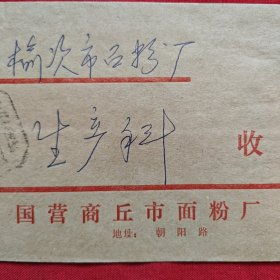 榆次市面粉厂
生产科
收
国营商丘市面粉厂
地址：朝阳路